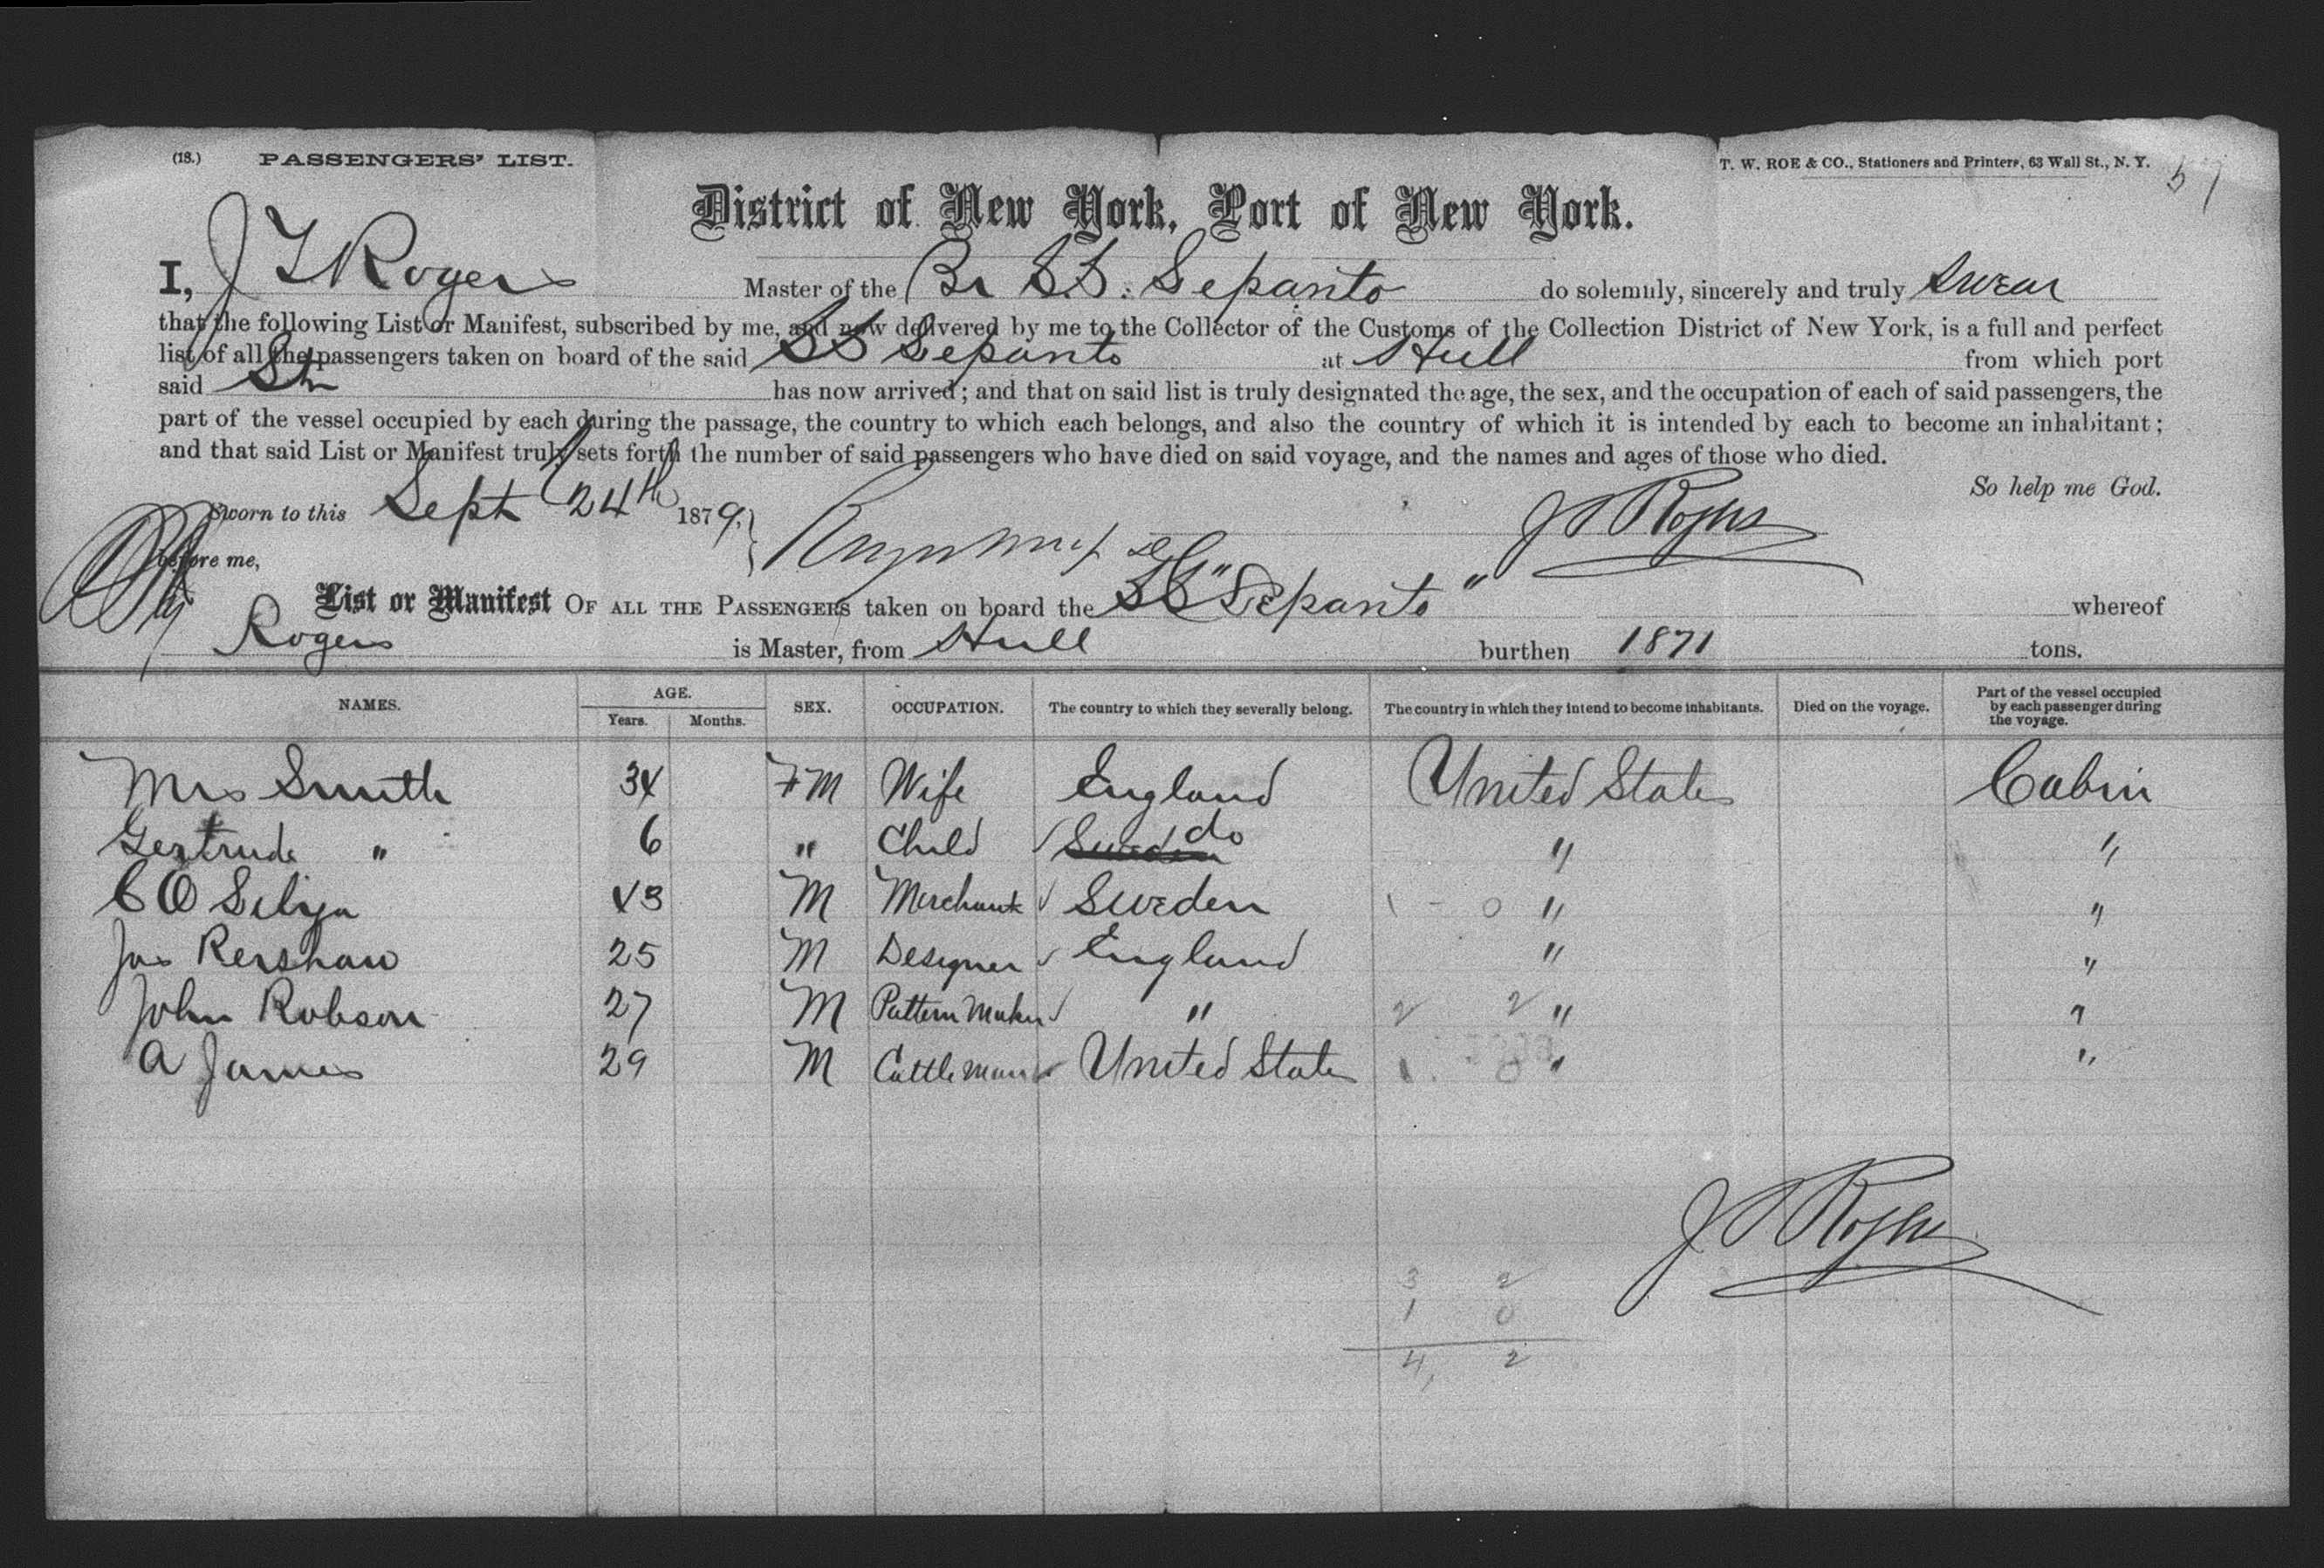 (18.) PASSENGERS' LIST. T. W. ROE & CO., Stationers and Printers, 63 Wall St., N. Y.
District of New York, Port of New York.
I, J T Rogers Master of the Br S.S. Lepanto do solemnly, sincerely and truly swear
that the following List or Manifest, subscribed by me, and now delivered by me to the Collector of the Customs of the Collection District of New York, is a full and perfect
list of all the passengers taken on board of the said SS Lepanto at Hull from which port
said Str has now arrived; and that on said list is truly designated the age, the sex, and the occupation of each of said passengers, the
part of the vessel occupied by each during the passage, the country to which each belongs, and also the country of which it is intended by each to become an inhabitant;
and that said List or Manifest truly sets forth the number of said passengers who have died on said voyage, and the names and ages of those who died.
So help me God.
Sworn to this Sept 24th 1879, J T Rogers
before me,
List or Manifest OF ALL THE PASSENGERS taken on board the SS "Lepanto" whereof
Rogers is Master, from Hull burthen 1871 tons.
NAMES. AGE. Years. Months. SEX. OCCUPATION. The country to which they severally belong. The country in which they intend to become inhabitants. Died on the voyage. Part of the vessel occupied by each passenger during the voyage.
Mrs Smith 34 FM Wife England United States Cabin
Gertrude " 6 " Child Sweden do " "
C O 43 M Merchant Sweden 1 - 0 " "
Jas Kershaw 25 M Designer England " "
John Robson 27 M Pattern Maker " 2 2 " "
A James 29 M Cattle Man United States 1. 0 " "
J T Rogers
3 2
1 0
4, 2